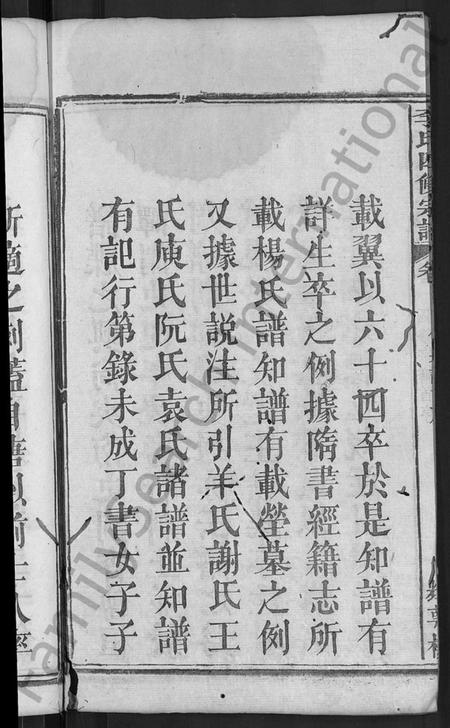 李氏四修宗譜
載翼以六十四卒於是知譜有
詳生卒之例據隋書經籍志所
載楊氏譜知譜有載塋墓之例
又據世說注所引羊氏謝氏王
氏庾氏阮氏袁氏諸譜並知譜
有記行第錄未成丁書女子子
所適之例蓋自唐以前士人
familysearch international